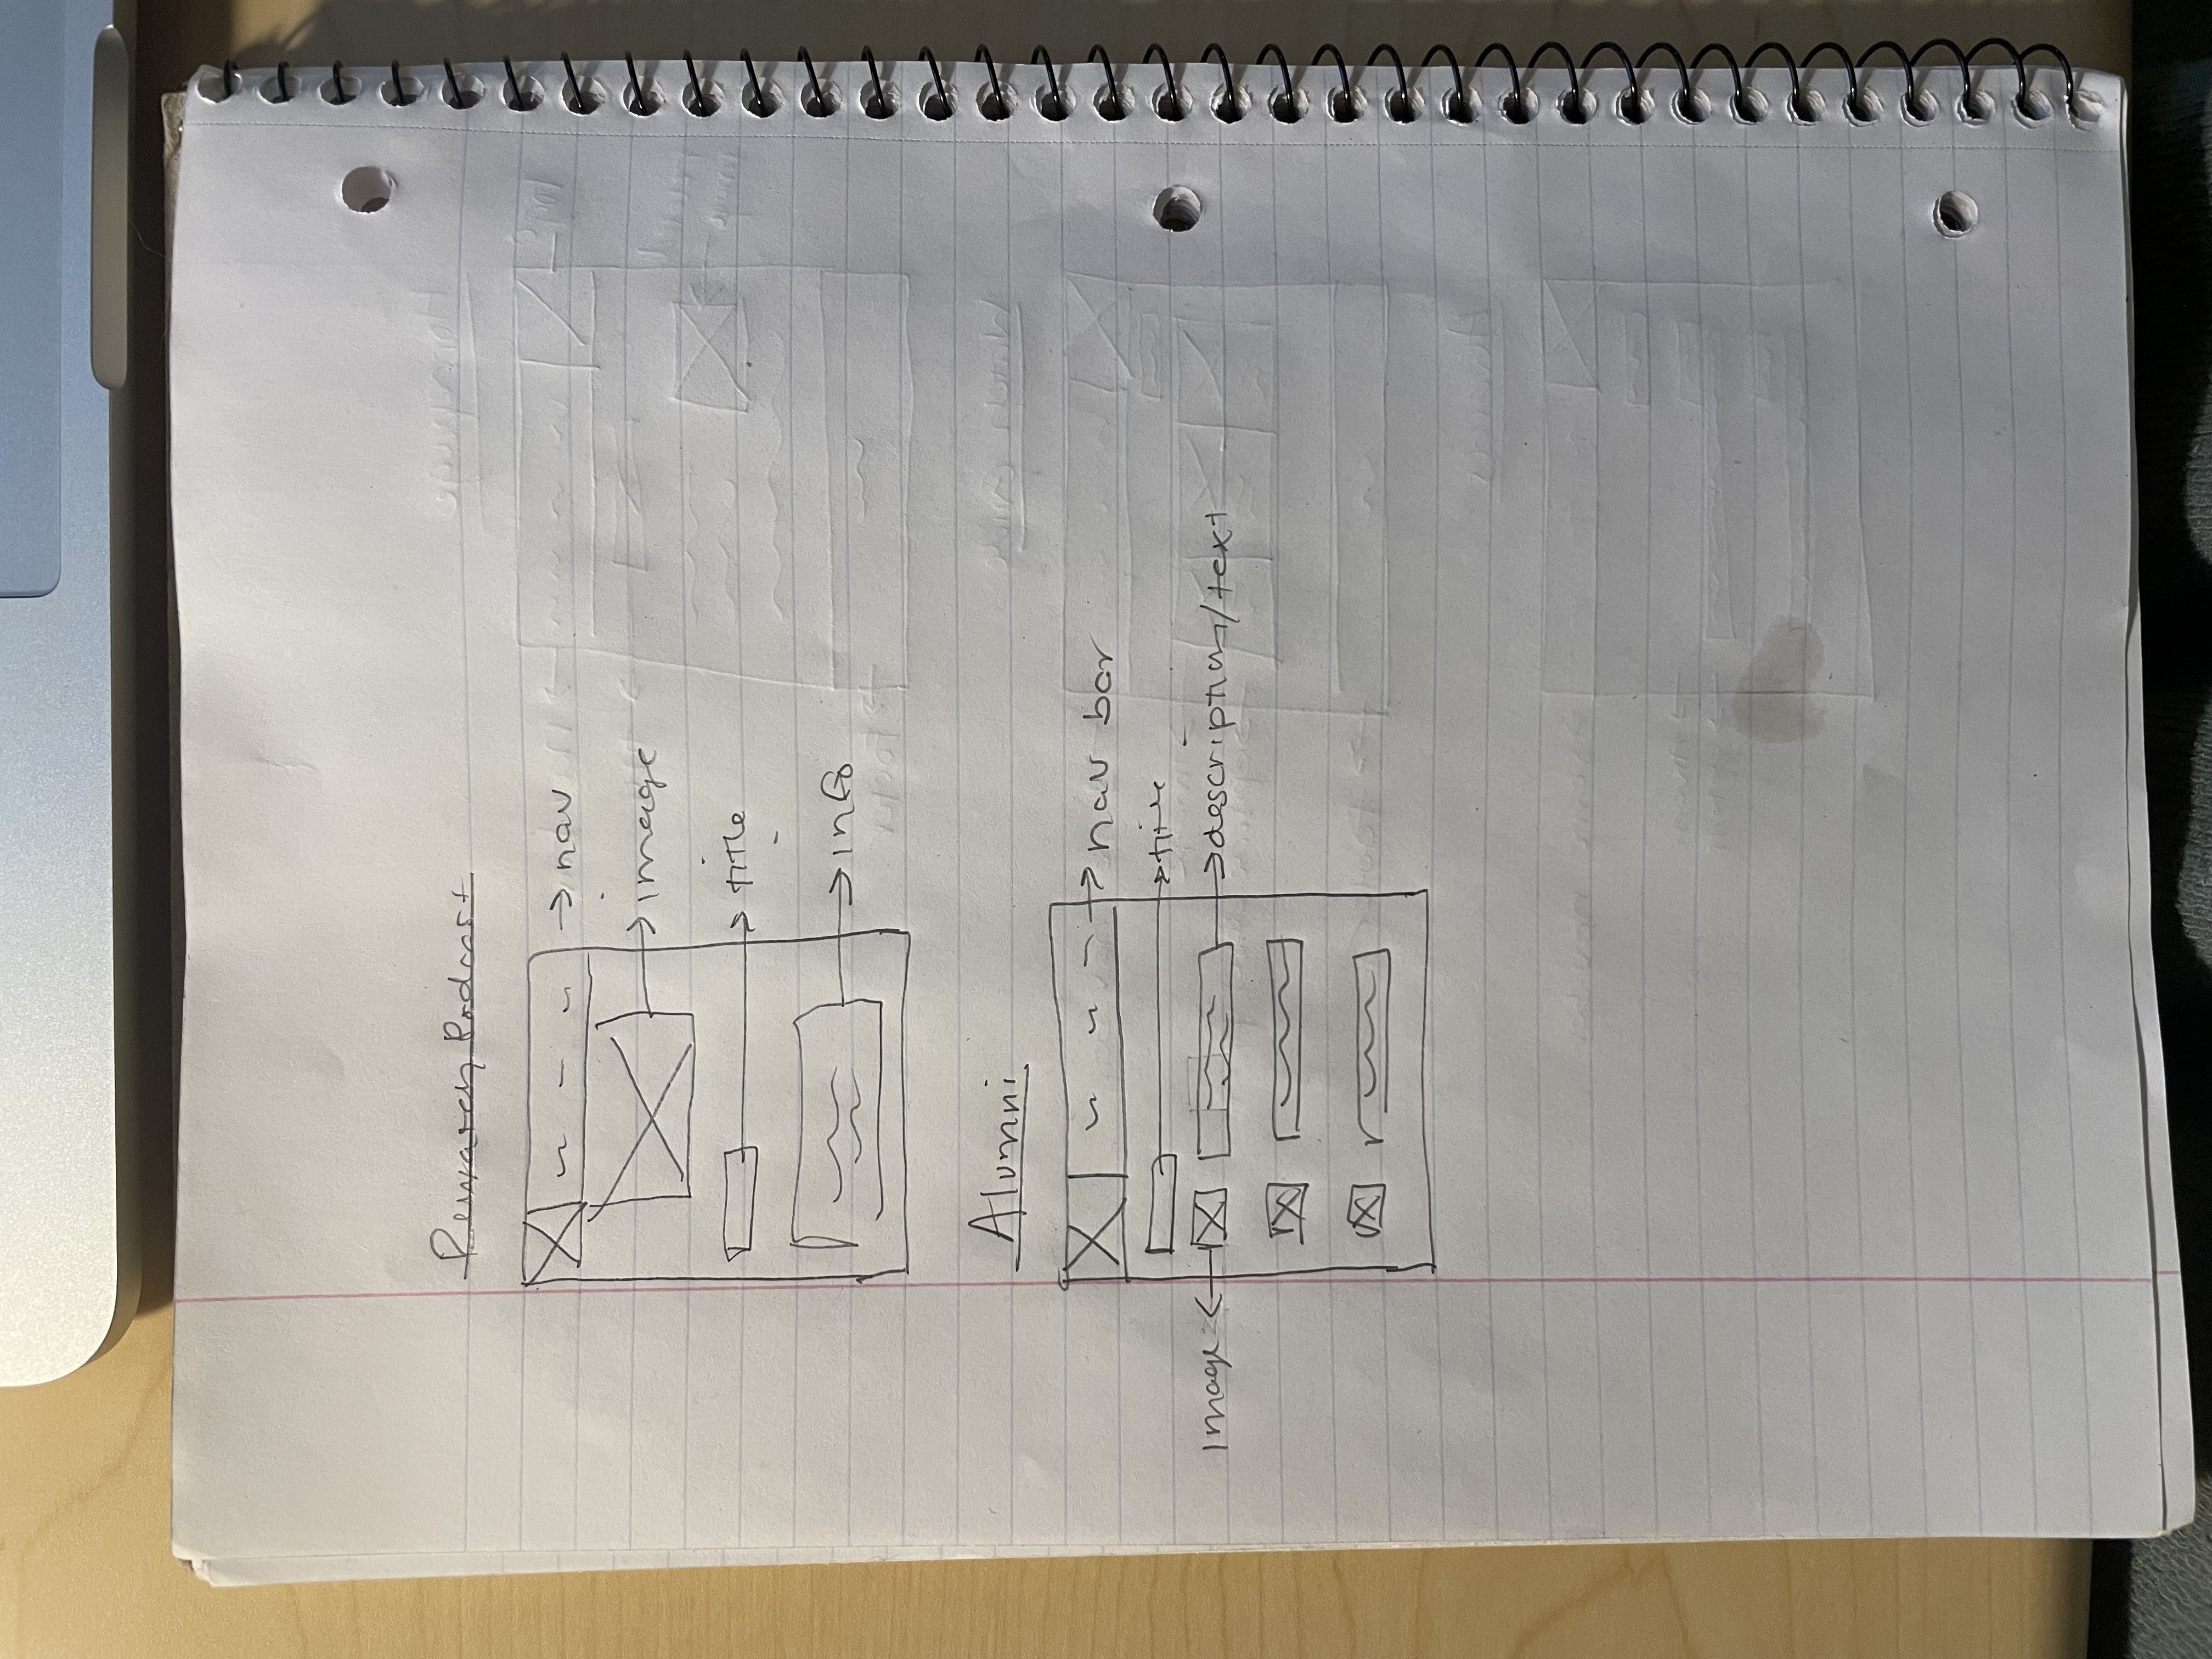 Research Podcast
nav
image
title
info
Alumni
nav bar
title
Image
description/text